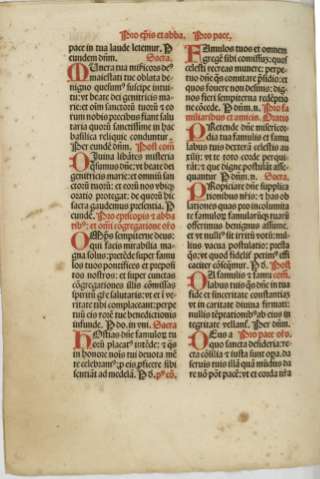 Pro epis et abba. Pro pace.
pace in tua laude letemur. P
eundem dnm. Sacra.
Munera tua misericors de⁹
maiestati tue oblata be-
nigno quesum⁹ suscipe intui-
tu: vt beate dei genitricis ma-
rie: et oim sanctorū tuorū τ eo
rum nobis precibus fiant salu
taria quorū sanctissime in hac
basilica reliquie conduntur.
Per eundē dnm. Post com̄
Diuina libātes misteria
quesumus dne: vt beate dei
genitricis marie: et omniū san
ctorū tuorū: et eorū nos vbiqȝ
oratio protegat: de quorū hic
sacra gaudemus presentia. P
eundē. Pro episcopis τ abba
tib⁹: et oīni cōgregatione oro
Omps sempiterne deus
qui facis mirabilia ma-
gna solus: pretēde super famu
los tuos pontifices et preposi
tos nostros: et super cunctas
cōgregationes illis cōmissas
spiritū grē salutaris: vt et ī ve-
ritate tibi complaceant: perpe
tuū eis rorē tue benedictionis
infunde. P do. in vni. Sacra
Hostias dne famuloȝ tu
orū placat⁹ intēde: τ qs
in honore nois tui deuota mē
te celebram⁹: p eis pficere sibi
sentiāt ad medelā. P d. p⁹ cō.
Famulos tuos et omnem
gregē sibi comissuȝ: quos
celesti recreas munere: perpe-
tuo dne qs comitare psidio: et
quos fouere non desinis: di-
gnos fieri sempiterna redēptio
ne cōcede. P dnm. n. Pro fa
miliaribus et amicis. Oratio
Pretende dne misericor-
dia tuā famulis et famu
labus tuis dexterā celestis au
xilij: vt te toto corde perqui-
rāt: τ que digne postulāt asse-
quantur P dnm. n. Sacra.
Propiciare dne supplica
tionibus nris: τ has ob
lationes quas pro incolumita
te famuloȝ famularūqȝ tuarū
offerimus benignus assume.
et vt nullius sit irritū votū: nul
lius vacua postulatio: presta
qs: vt quod fidelit petim⁹ effi
caciter cōsequim⁹. P d. Post
Da famulis τ famu com̄.
labus tuis qs dne in tua
fide et sinceritate constantiā:
vt in caritate diuina firmati:
nullis tēptationib⁹ ab eius in
tegritate vellant. Per dnm.
Deus a Pro pace oro.
quo sancta desideria: re-
cta cōsilia τ iusta sunt opa. da
seruis tuis illā quā mūdus da
re nō pōt pacē: vt et corda nra